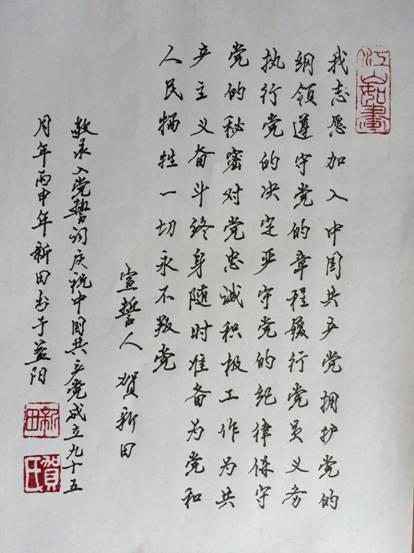 江山如畫
我志愿加入中国共产党拥护党的
纲领遵守党的章程履行党员义务
执行党的决定严守党的纪律保守
党的秘密对党忠诚积极工作为共
产主义奋斗终身随时准备为党和
人民牺牲一切永不叛党
宣誓人贺新田
敬录入党誓词庆祝中国共产党成立九十五
周年丙申年新田书于益阳
新田
賀氏